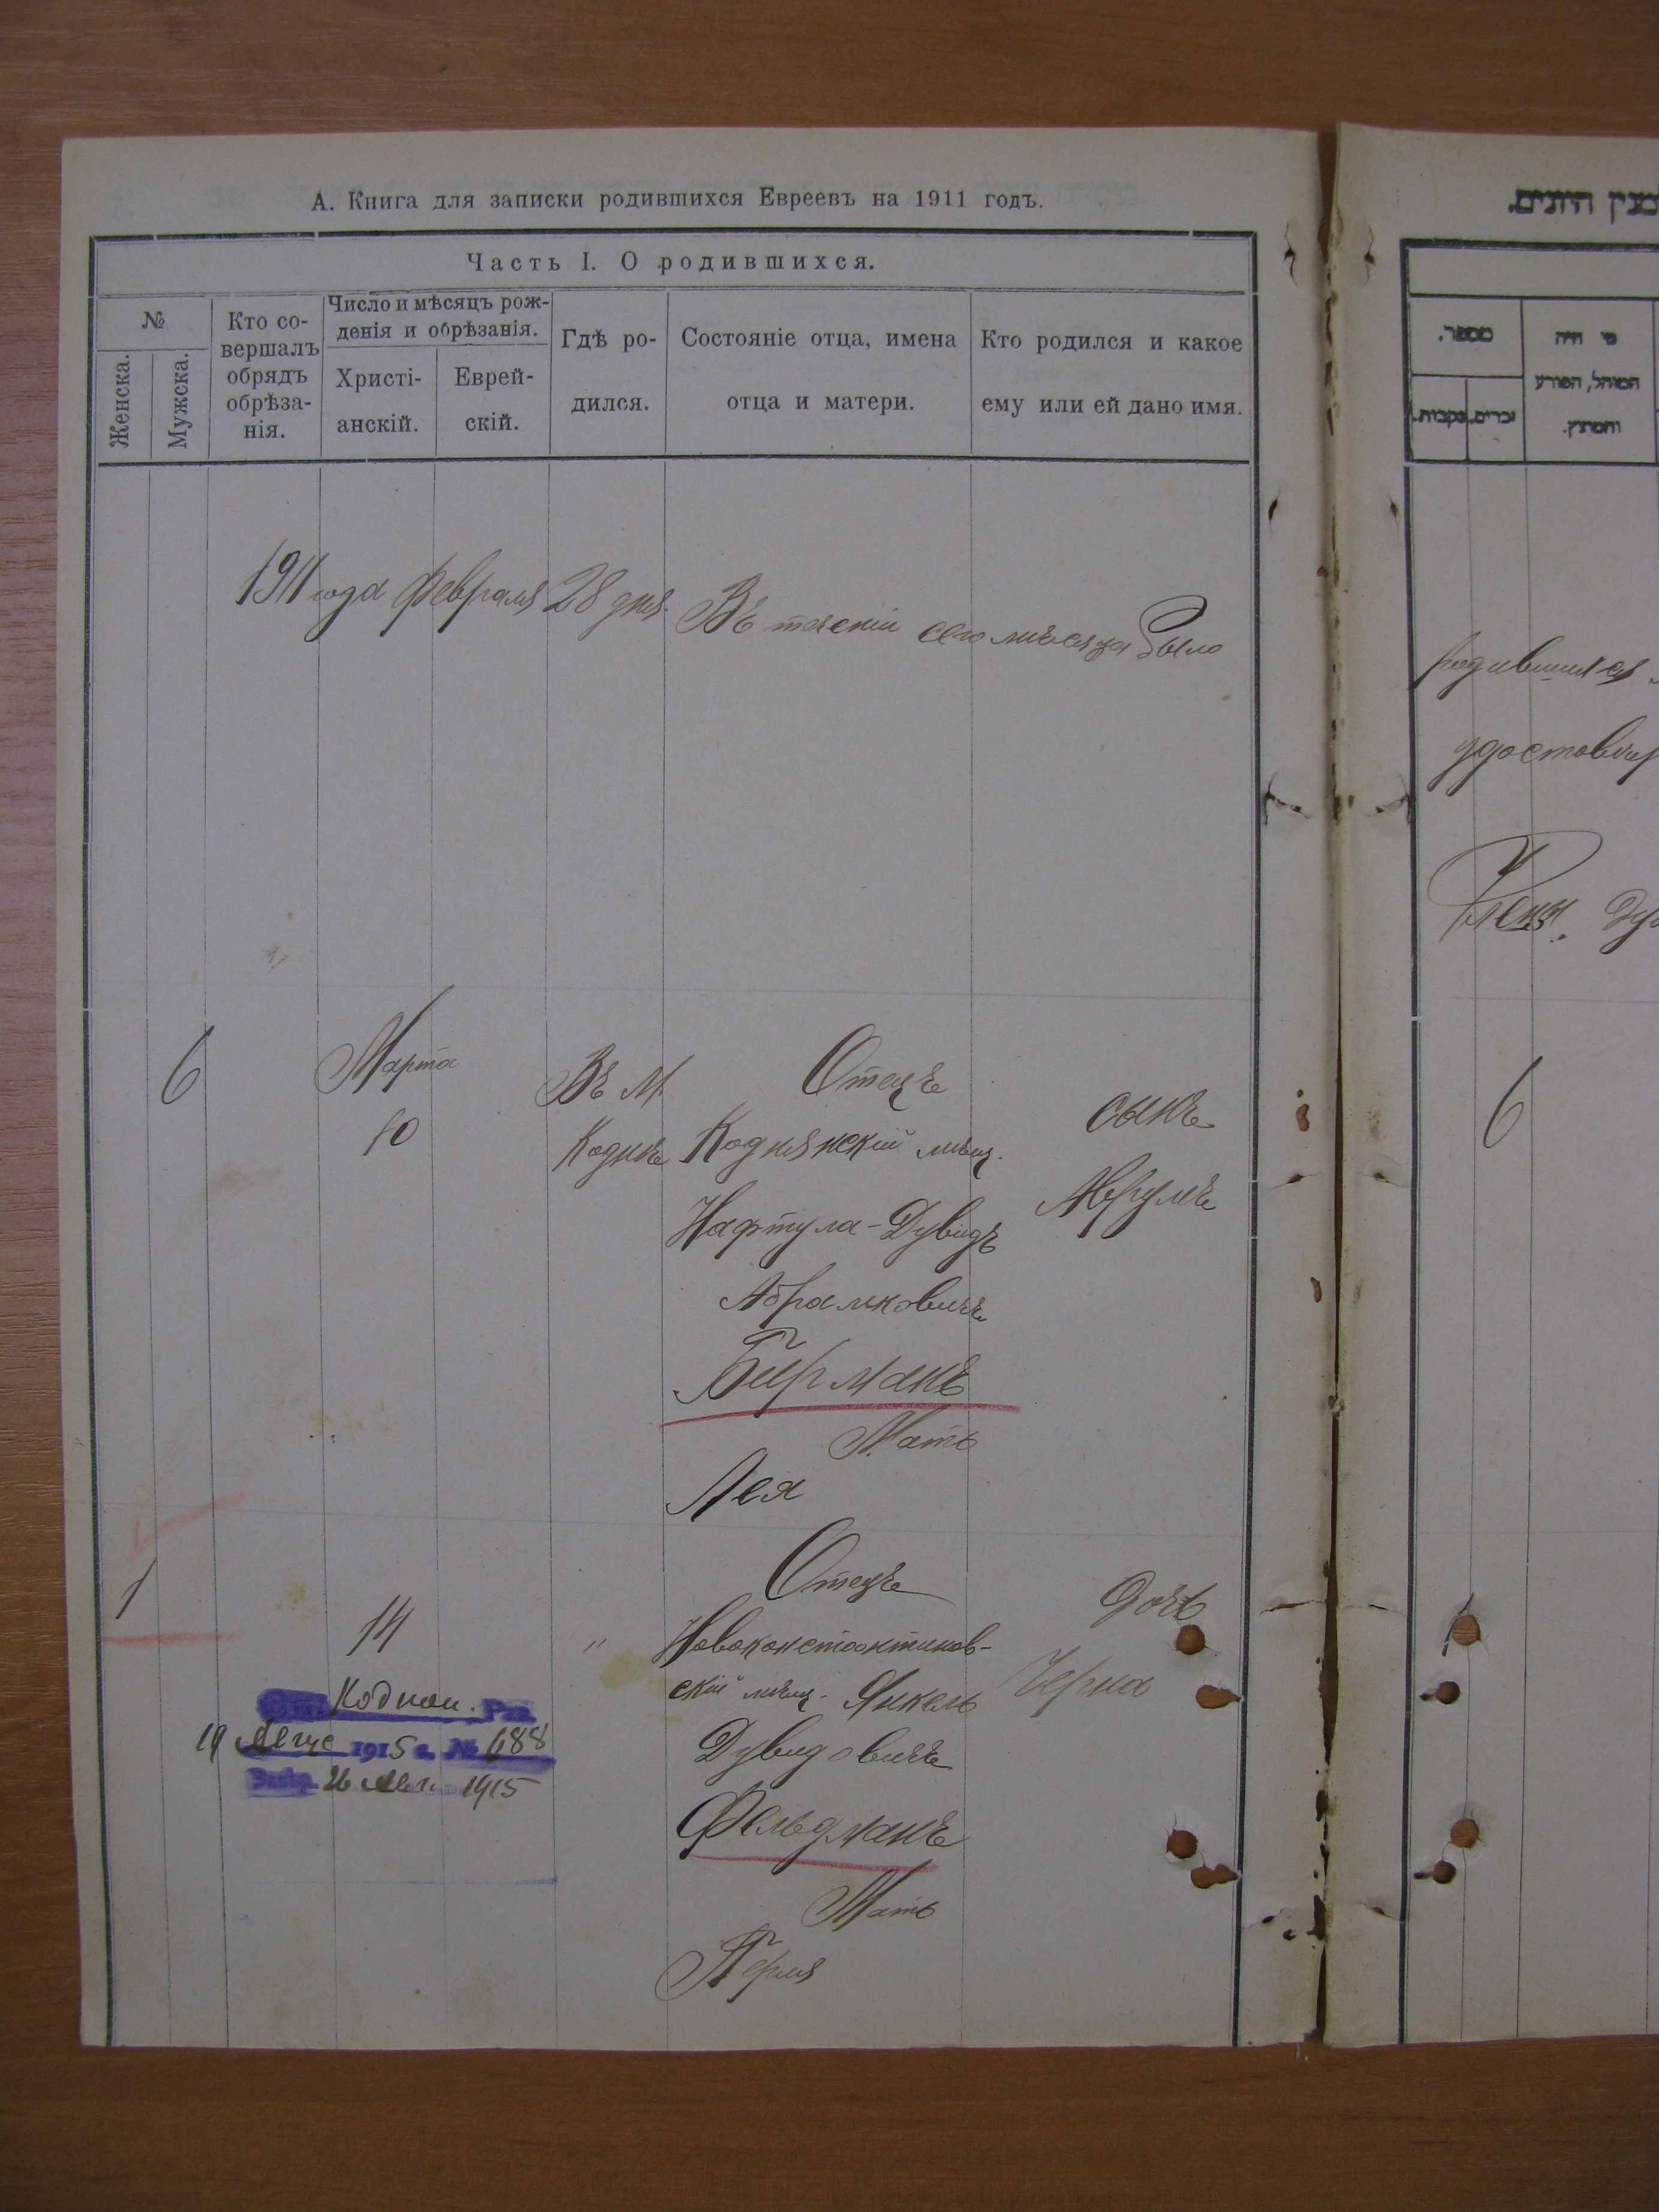 А. Книга для записки родившихся Евреевъ на 1911 годъ.
Часть I. О родившихся.
№
Женска.
Мужска.
Кто со-
вершалъ
обрядъ
обрѣза-
нія.
Число и мѣсяцъ рож-
денія и обрѣзанія.
Христі-
анскій.
Еврей-
скій.
Гдѣ ро-
дился.
Состояніе отца, имена
отца и матери.
Кто родился и какое
ему или ей дано имя.
1911 года Февраля 28 дня. Въ теченіи сего мѣсяца было
6
Марта
10
Въ М.
Коднѣ
Отецъ
Коднянскій мѣщ.
Нафтула-Дувидъ
Абрамковичъ
Бирманъ
Мать
Лея
сынъ
Аврумъ
1
14
"
Отецъ
Новоконстантинов-
скій мѣщ. Янкель
Дувидовичъ
Фельдманъ
Мать
Перля
дочь
Черна
Кодном. Рав.
19 Авгус 1915 г. № 688
26 Авг. 1915
מספר.
זכרים. נקבות.
מי היה
המוהל, הפורע
והמוצץ.
родившихся
удостовѣр
6
1